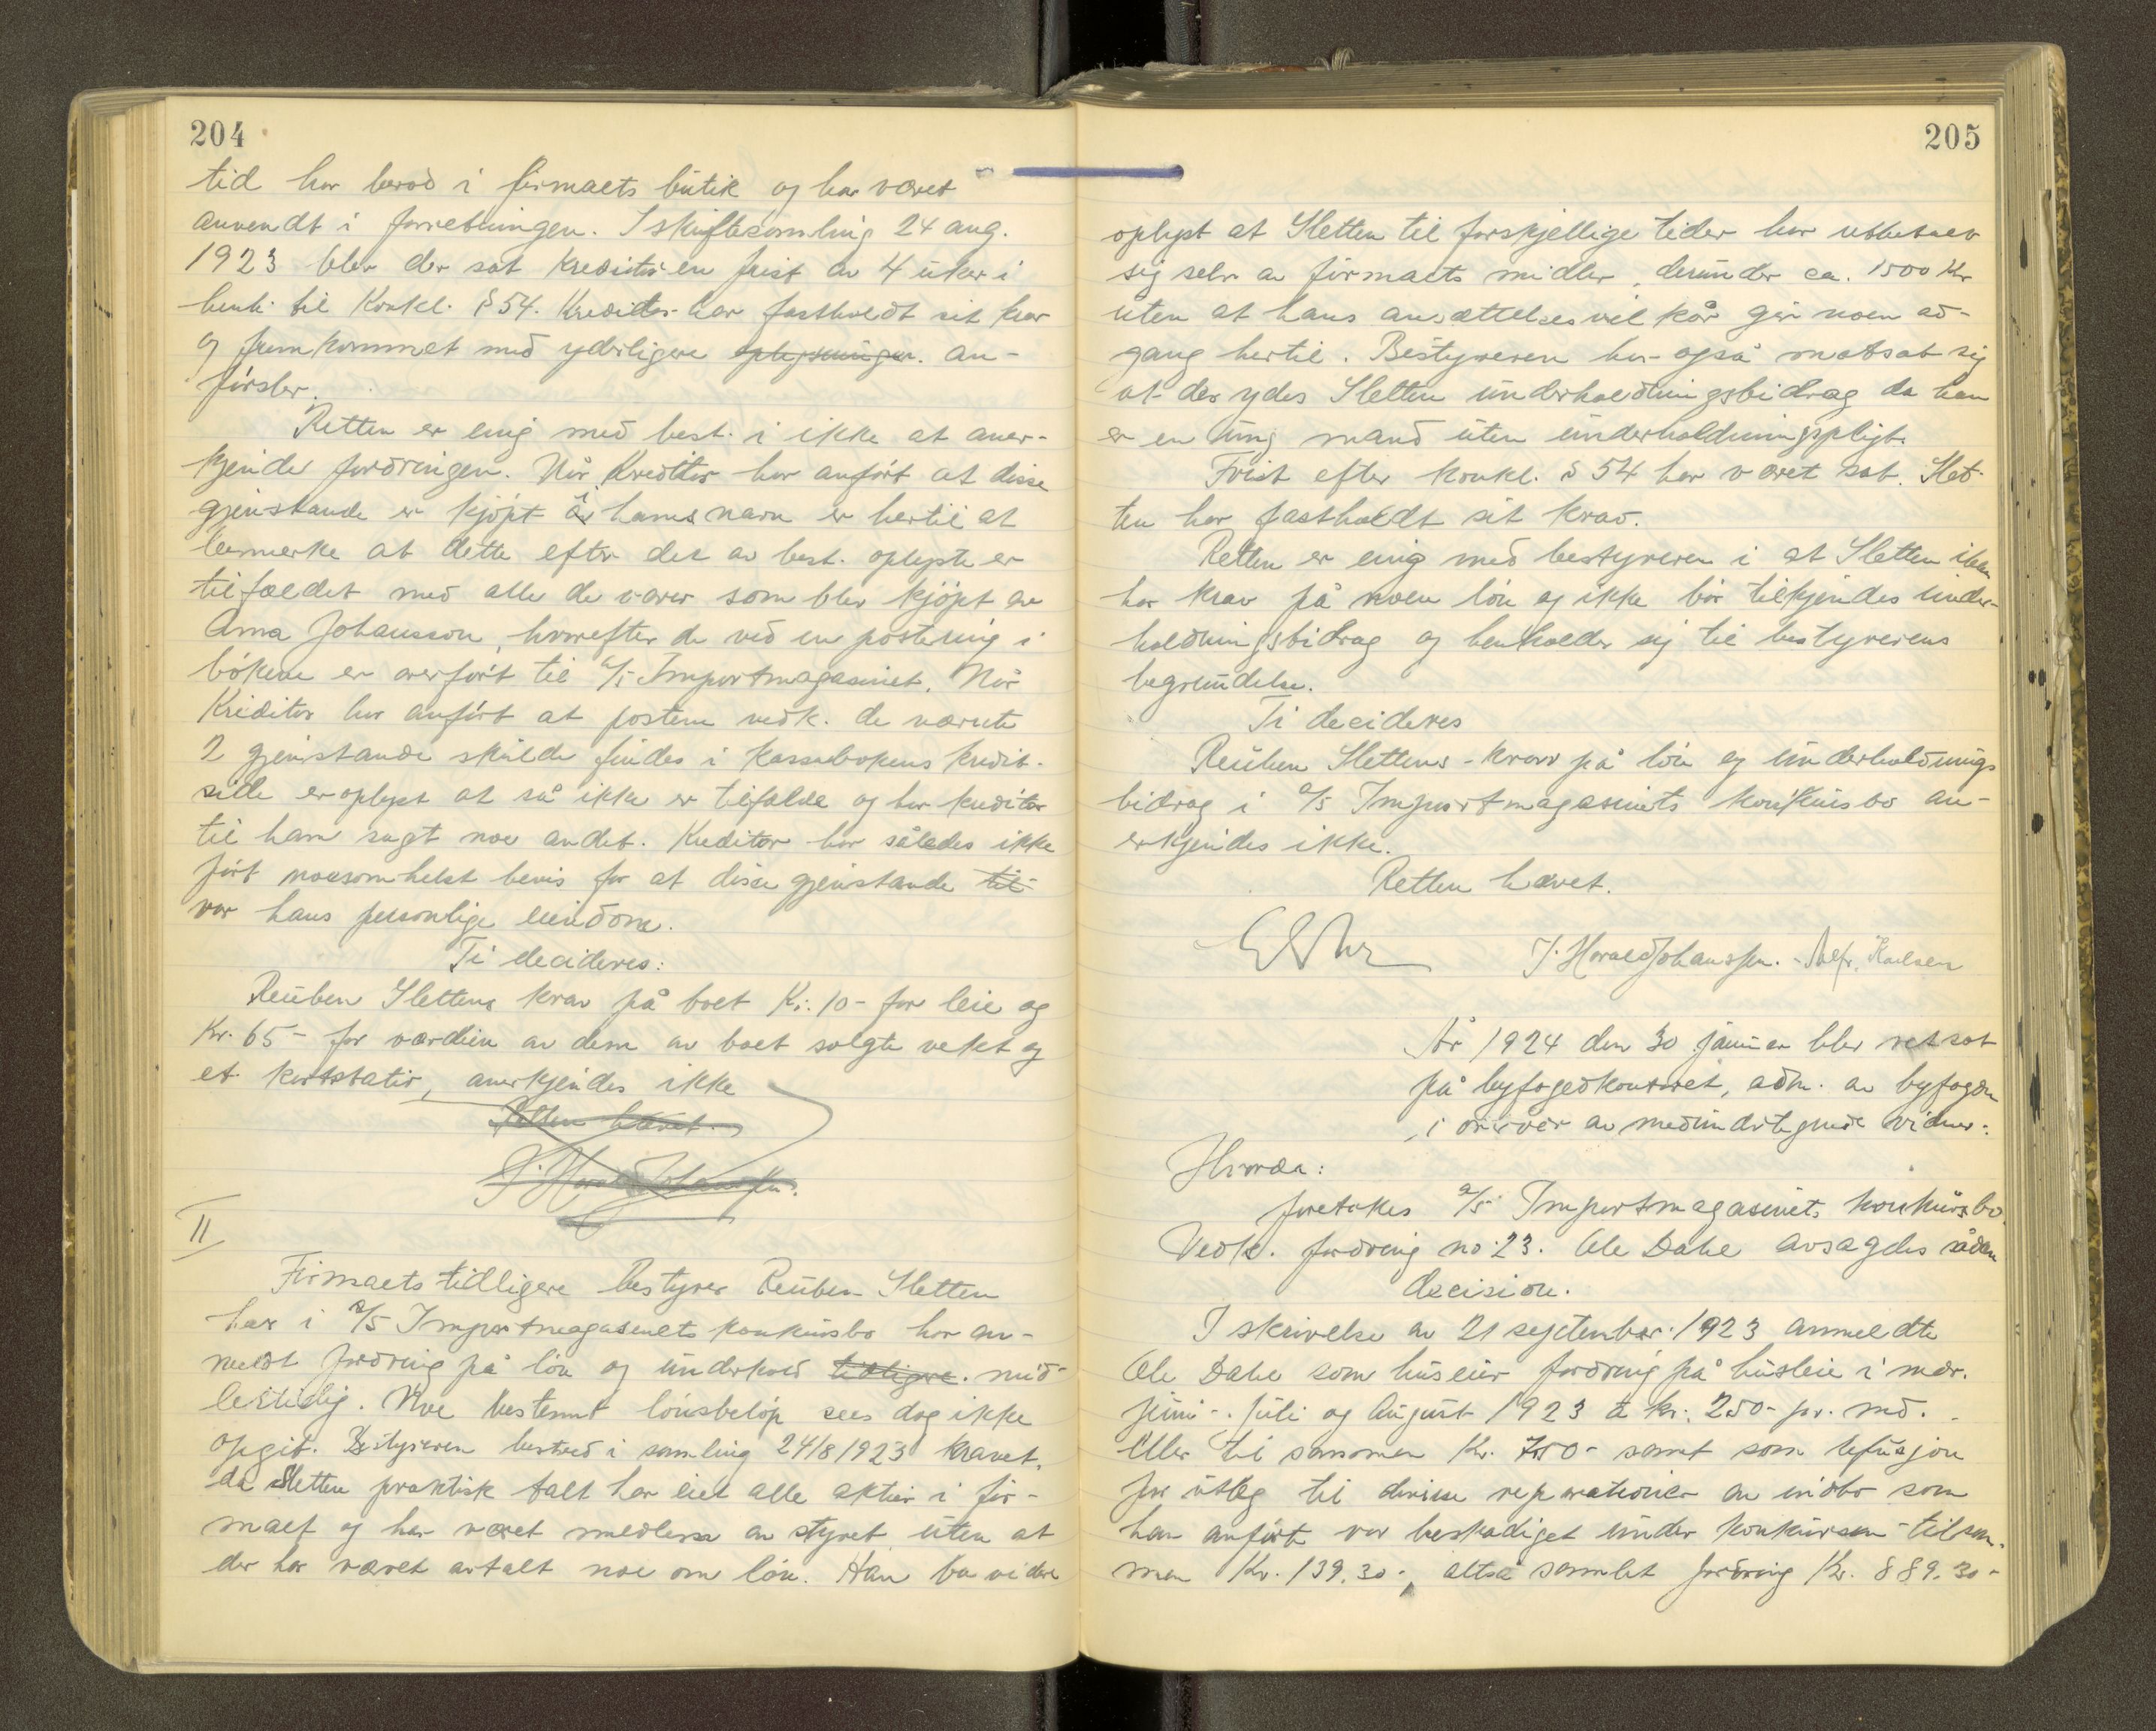 204
tid har berod i firmaets butik og har været
anvendt i forretningen. I skiftesamling 24 aug.
1923 blev der sat kreditor en frist av 4 uker i
henh. til Konkl. § 54. Kreditor har fastholdt sit krav
og fremkommet med yderligere oplysninger. an-
førsler.
Retten er enig med best. i ikke at aner-
kjende fordringen. Når kreditor har anført at disse
gjenstande er kjøpt i hans navn er hertil at
bemerke at dette efter det av best. oplyste er
tilfældet med alle de varer som blev kjøpt av
Arna Johansson, hvorefter de ved en postering i
bøkene er overført til A/S Importmagasinet. Når
Kreditor har anført at postene vedk. de nævnte
2 gjenstande skulde findes i kassabokens kredit-
side er oplyst at så ikke er tilfælde og har kreditor
til ham sagt noe andet. Kreditor har således ikke
ført noesomhelst bevis for at disse gjenstande til
var hans personlige eiendom.
Ti decideres:
Reuben Slettens krav på boet Kr. 10- for leie og
Kr. 65- for værdien av dem av boet solgte vekt og
et kortstativ, anerkjendes ikke
Retten hævet.
J. Harald Johanssen.
II
Firmaets tidligere bestyrer Reuben Sletten
har i A/S Importmagasinets konkursbo har an-
meldt fordring på løn og underhold tidligere. mid-
lertidig. Noe bestemt lønsbeløp sees dog ikke
opgit. Bestyreren bestred i samling 24/8 1923 kravet,
da Sletten praktisk talt har eiet alle aktier i fir-
maet og har været medlem av styret uten at
der har været avtalt noe om løn. Han har videre
205
oplyst at Sletten til forskjellige tider har utbetalt
sig selv av firmaets midler, derunder ca. 1500 Kr
uten at hans ansættelsesvilkår gir noen ad-
gang hertil. Bestyreren har også motsat sig
at der ydes Sletten underholdningsbidrag da han
er en ung mand uten underholdningspligt.
Frist efter konkl. § 54 har været sat. Slet-
ten har fastholdt sit krav.
Retten er enig med bestyreren i at Sletten ikke
har krav på noen løn og ikke bør tilkjendes under-
holdningsbidrag og henholder sig til bestyrerens
begrundelse.
Ti decideres
Reuben Slettens krav på løn og underholdnings
bidrag i A/S Importmagasinets konkursbo an-
erkjendes ikke.
Retten hævet.
J. Harald Johanssen. Alfr. Karlsen
År 1924 den 30 januar blev ret sat
på byfogedkontoret, adm. av byfogden
i overvær av medundertegnede vidner:
Hvorda:
foretakes A/S Importmagasinets konkursbo.
Vedk. fordring no: 23. Ole Dahe avsagdes sådan
decision.
I skrivelse av 21 september 1923 anmeldte
Ole Dahe som huseier fordring på husleie i mdr.
juni - juli og August 1923 á kr. 250- pr. md. -
eller til sammen Kr. 750- samt som refusjon
for utlæg til diverse reparationer av indbo som
han anførte var beskadiget under konkursen - tilsam-
men Kr. 139.30-, altså samlet fordring Kr. 889.30-